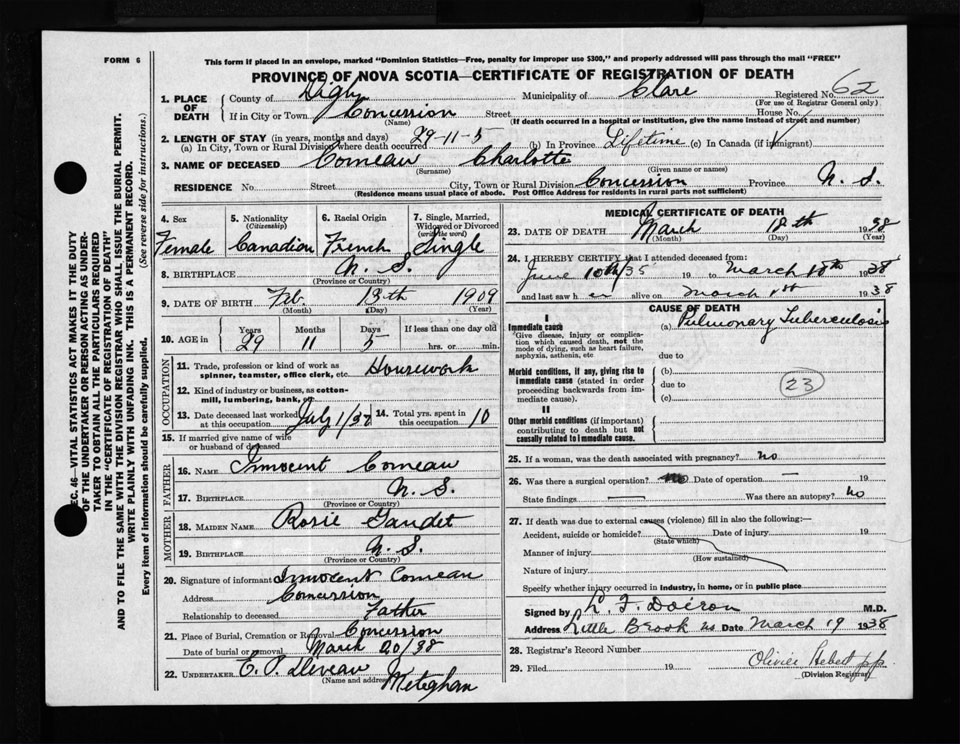 FORM 6
This form if placed in an envelope, marked "Dominion Statistics—Free, penalty for improper use $300," and properly addressed will pass through the mail "FREE"
PROVINCE OF NOVA SCOTIA—CERTIFICATE OF REGISTRATION OF DEATH
1. PLACE OF DEATH County of Digby Municipality of Clare Registered No. 62
(For use of Registrar General only)
If in City or Town Concession Street House No.
(Name) (If death occurred in a hospital or institution, give the name instead of street and number)
2. LENGTH OF STAY (in years, months and days)
(a) In City, Town or Rural Division where death occurred 29-11-5 (b) In Province Lifetime (c) In Canada (if immigrant)
3. NAME OF DECEASED Comeau Charlotte
(Surname) (Given name or names)
RESIDENCE No. Street City, Town or Rural Division Concession Province N. S.
(Residence means usual place of abode. Post Office Address for residents in rural parts not sufficient)
4. Sex Female
5. Nationality (Citizenship) Canadian
6. Racial Origin French
7. Single, Married, Widowed or Divorced (write the word) Single
8. BIRTHPLACE N. S.
(Province or County)
9. DATE OF BIRTH Feb. 13th 1909
(Month) (Day) (Year)
10. AGE in Years 29 Months 11 Days 5 If less than one day old hrs. or min.
OCCUPATION
11. Trade, profession or kind of work as spinner, teamster, office clerk, etc. Housework
12. Kind of industry or business, as cotton-mill, lumbering, bank, etc.
13. Date deceased last worked at this occupation July 1/37 14. Total yrs. spent in this occupation 10
15. If married give name of wife or husband of deceased
FATHER
16. NAME Innocent Comeau
17. BIRTHPLACE N. S.
(Province or Country)
MOTHER
18. MAIDEN NAME Rosie Gaudet
19. BIRTHPLACE N. S.
(Province or Country)
20. Signature of informant Innocent Comeau
Address Concession
Relationship to deceased Father
21. Place of Burial, Cremation or Removal Concession
Date of burial or removal March 20/38
22. UNDERTAKER E. P. Deveau
(Name and address) Meteghan
MEDICAL CERTIFICATE OF DEATH
23. DATE OF DEATH March 18th 1938
(Month) (Day) (Year)
24. I HEREBY CERTIFY that I attended deceased from:
June 10th/35 19 to March 18th 1938
and last saw her alive on March 1st 1938
CAUSE OF DEATH
I
Immediate cause
Give disease, injury or complication which caused death, not the mode of dying, such as heart failure, asphyxia, asthenia, etc
(a) Pulmonary Tuberculosis
due to
Morbid conditions, if any, giving rise to immediate cause (stated in order proceeding backwards from immediate cause).
(b)
due to
(c)
23
II
Other morbid conditions (if important) contributing to death but not causally related to immediate cause.
25. If a woman, was the death associated with pregnancy? no
26. Was there a surgical operation? no Date of operation — 19
State findings — Was there an autopsy? no
27. If death was due to external causes (violence) fill in also the following:—
Accident, suicide or homicide? Date of injury 19
(State which)
Manner of injury
(How sustained)
Nature of injury
Specify whether injury occurred in industry, in home, or in public place
Signed by L. F. Doiron M.D.
Address Little Brook NS Date March 19 1938
28. Registrar's Record Number
29. Filed 19 Olivier Hebert pp.
(Division Registrar)
SEC. 46—VITAL STATISTICS ACT MAKES IT THE DUTY
OF THE UNDERTAKER OR PERSON ACTING AS UNDER-
TAKER TO OBTAIN ALL THE PARTICULARS REQUIRED
IN THE "CERTIFICATE OF REGISTRATION OF DEATH"
AND TO FILE THE SAME WITH THE DIVISION REGISTRAR WHO SHALL ISSUE THE BURIAL PERMIT.
WRITE PLAINLY WITH UNFADING INK. THIS IS A PERMANENT RECORD.
Every item of information should be carefully supplied. (See reverse side for instructions.)